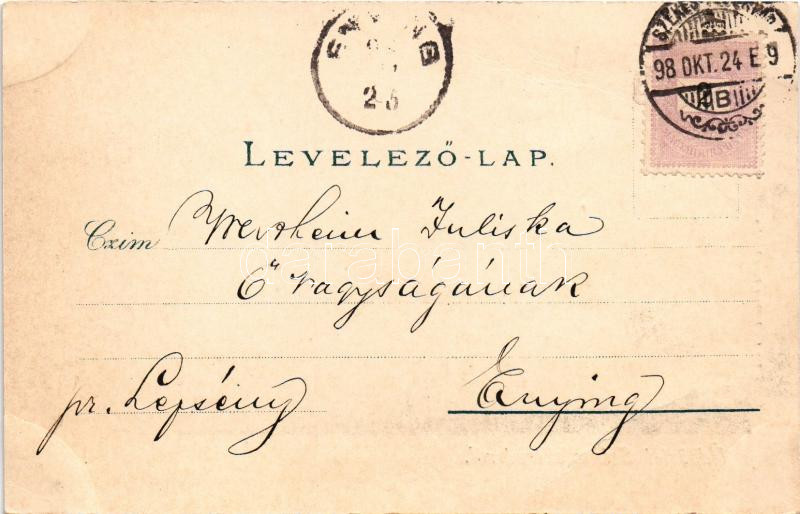 ENYING
98
25
98 OKT. 24 E 9
B
LEVELEZŐ-LAP.
Czim Wertheim Juliska
Ő Nagyságának
pr. Lepsény Enying
darabanth